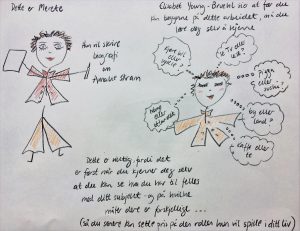 Dette er Merete
Hun vil skrive
biografi
om
Annabit Stram
Elisabet Young-Bruehl sier at før du
kan begynne på dette arbeidet, må du
lære deg selv å kjenne
Kjøre bil
eller
sykle?
se TV eller
lese?
Pizza
eller
sushi?
by eller
land?
Kaffe eller
te
eller
Dette er viktig fordi det
er først når du kjenner deg selv
at du kan se hva du har til felles
med ditt subjekt - og på hvilke
måter dere er forskjellige ...
(Så du senere kan sette pris på den rollen hun vil spille i ditt liv)